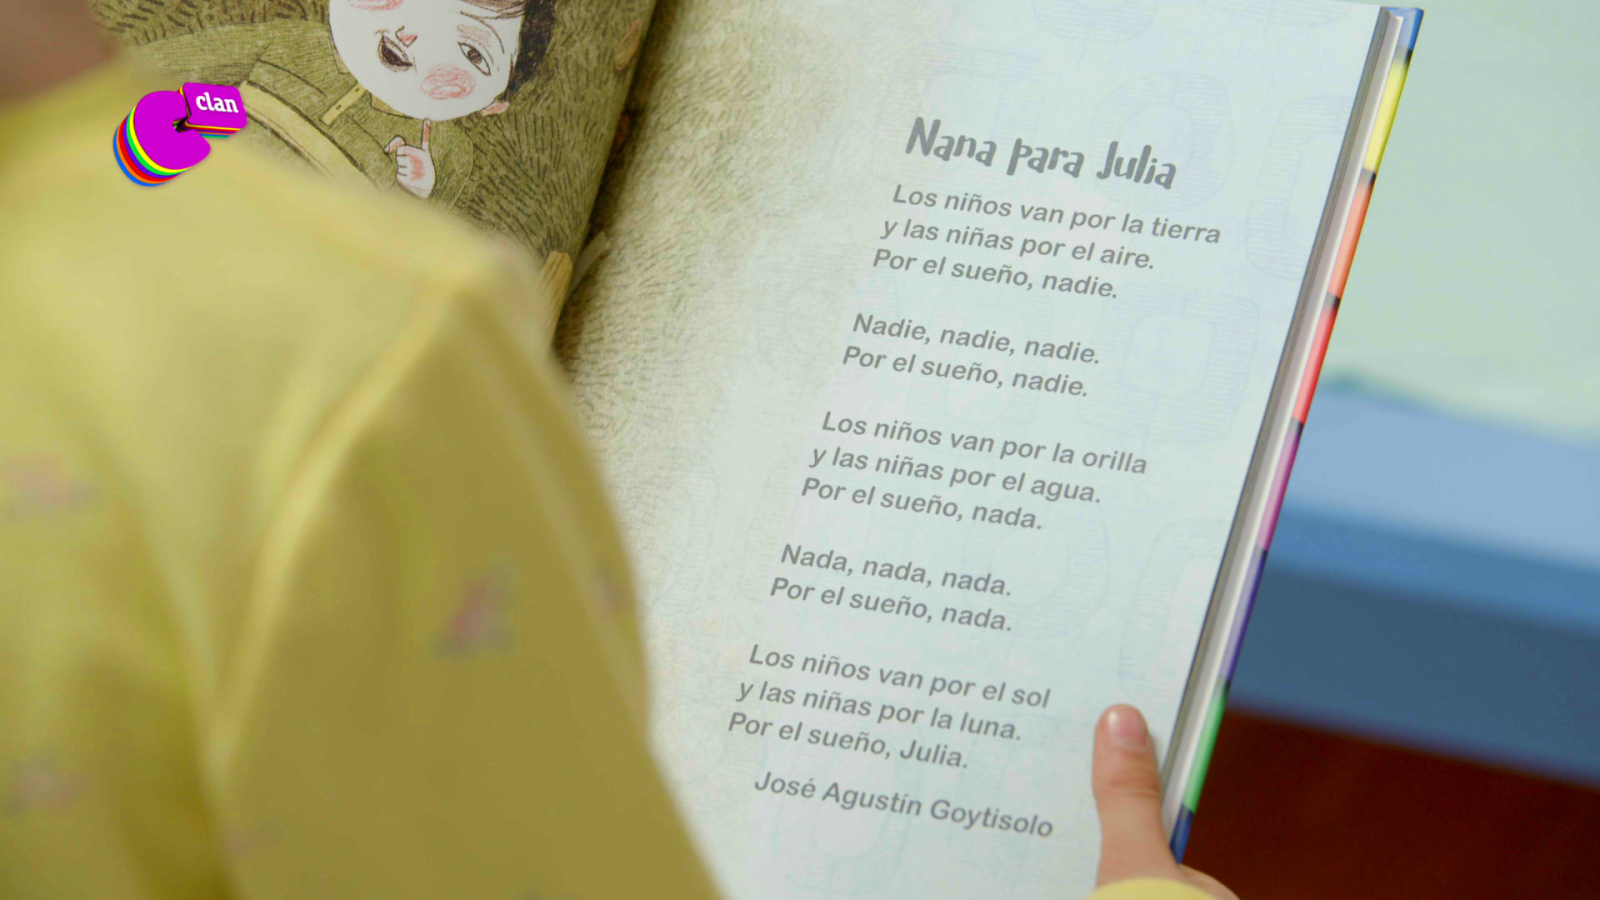 clan
Nana para Julia
Los niños van por la tierra
y las niñas por el aire.
Por el sueño, nadie.
Nadie, nadie, nadie.
Por el sueño, nadie.
Los niños van por la orilla
y las niñas por el agua.
Por el sueño, nada.
Nada, nada, nada.
Por el sueño, nada.
Los niños van por el sol
y las niñas por la luna.
Por el sueño, Julia.
José Agustín Goytisolo